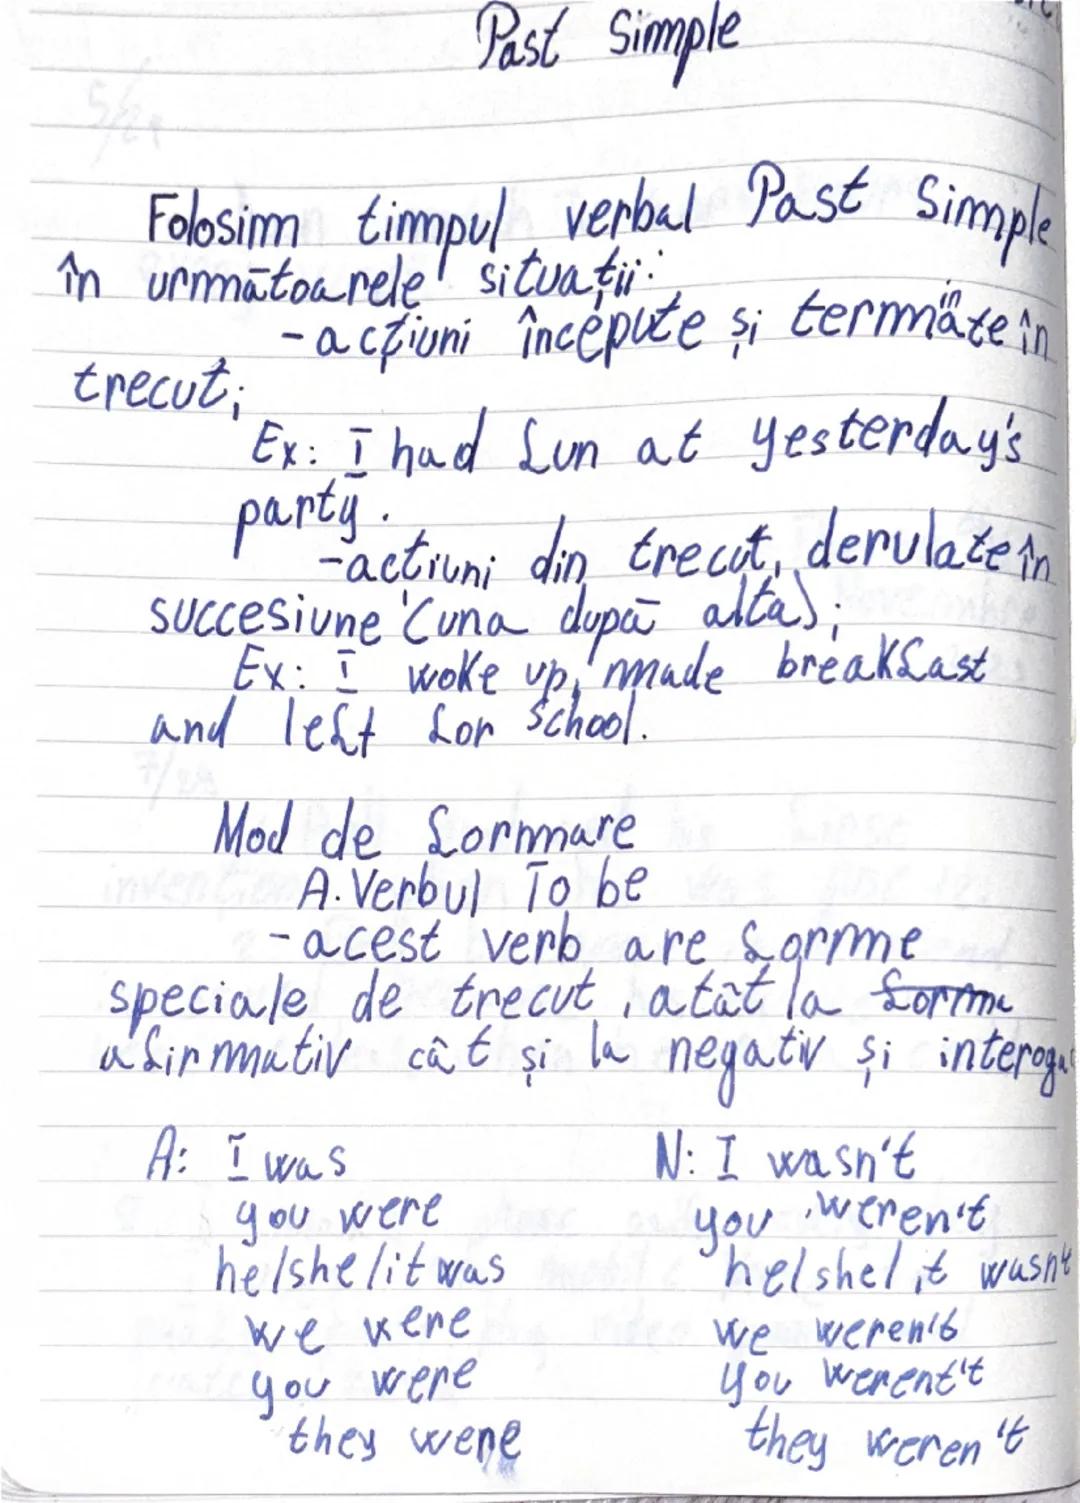 Past Simple
Folosim timpul verbal Past Simple
în următoarele situații:
- acțiuni începute și terminate în
trecut;
Ex: I had fun at yesterday's
party.
- acțiuni din trecut, derulate în
succesiune (una după alta);
Ex: I woke up, made breakfast
and left for school.
Mod de formare
A. Verbul To be
- acest verb are forme
speciale de trecut, atât la forma
afirmativ cât și la negativ și interoga
A: I was
you were
he/she/it was
we were
you were
they were
N: I wasn't
you weren't
he/she/it wasn't
we weren't
you werent't
they weren't